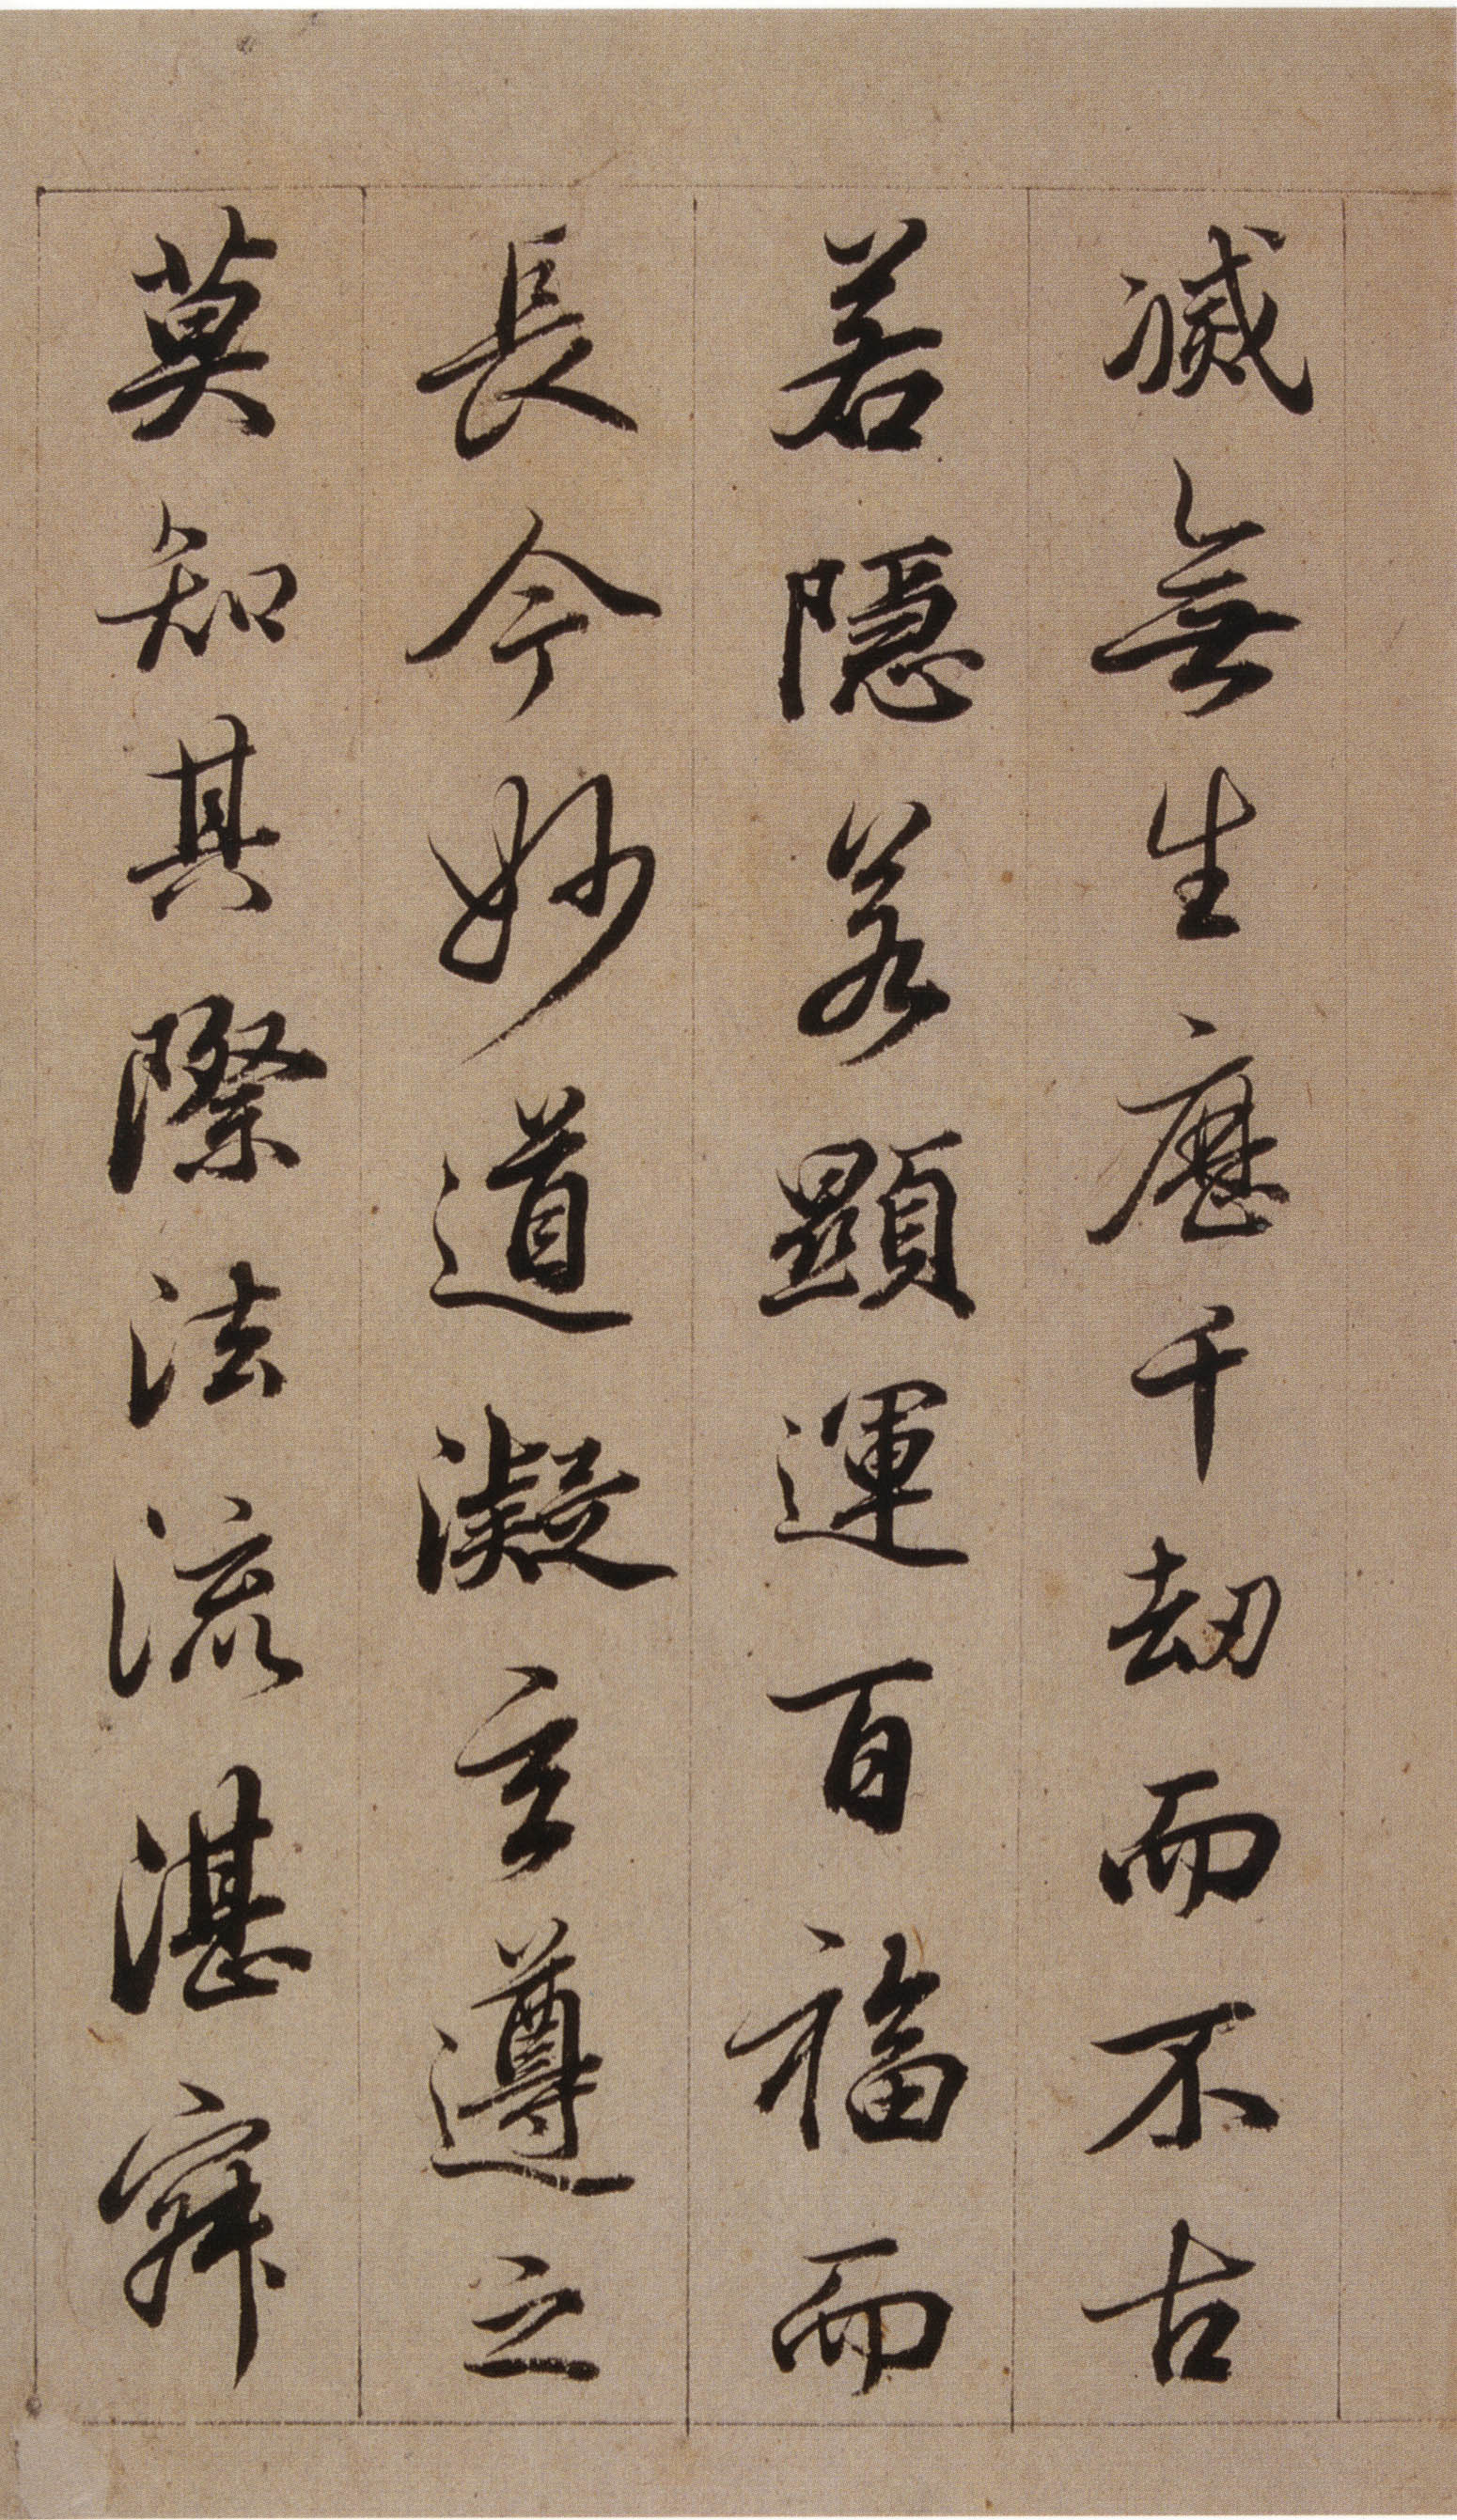 滅無生歷千劫而不古
若隱若顯運百福而
長今妙道凝玄遵之
莫知其際法流湛寂